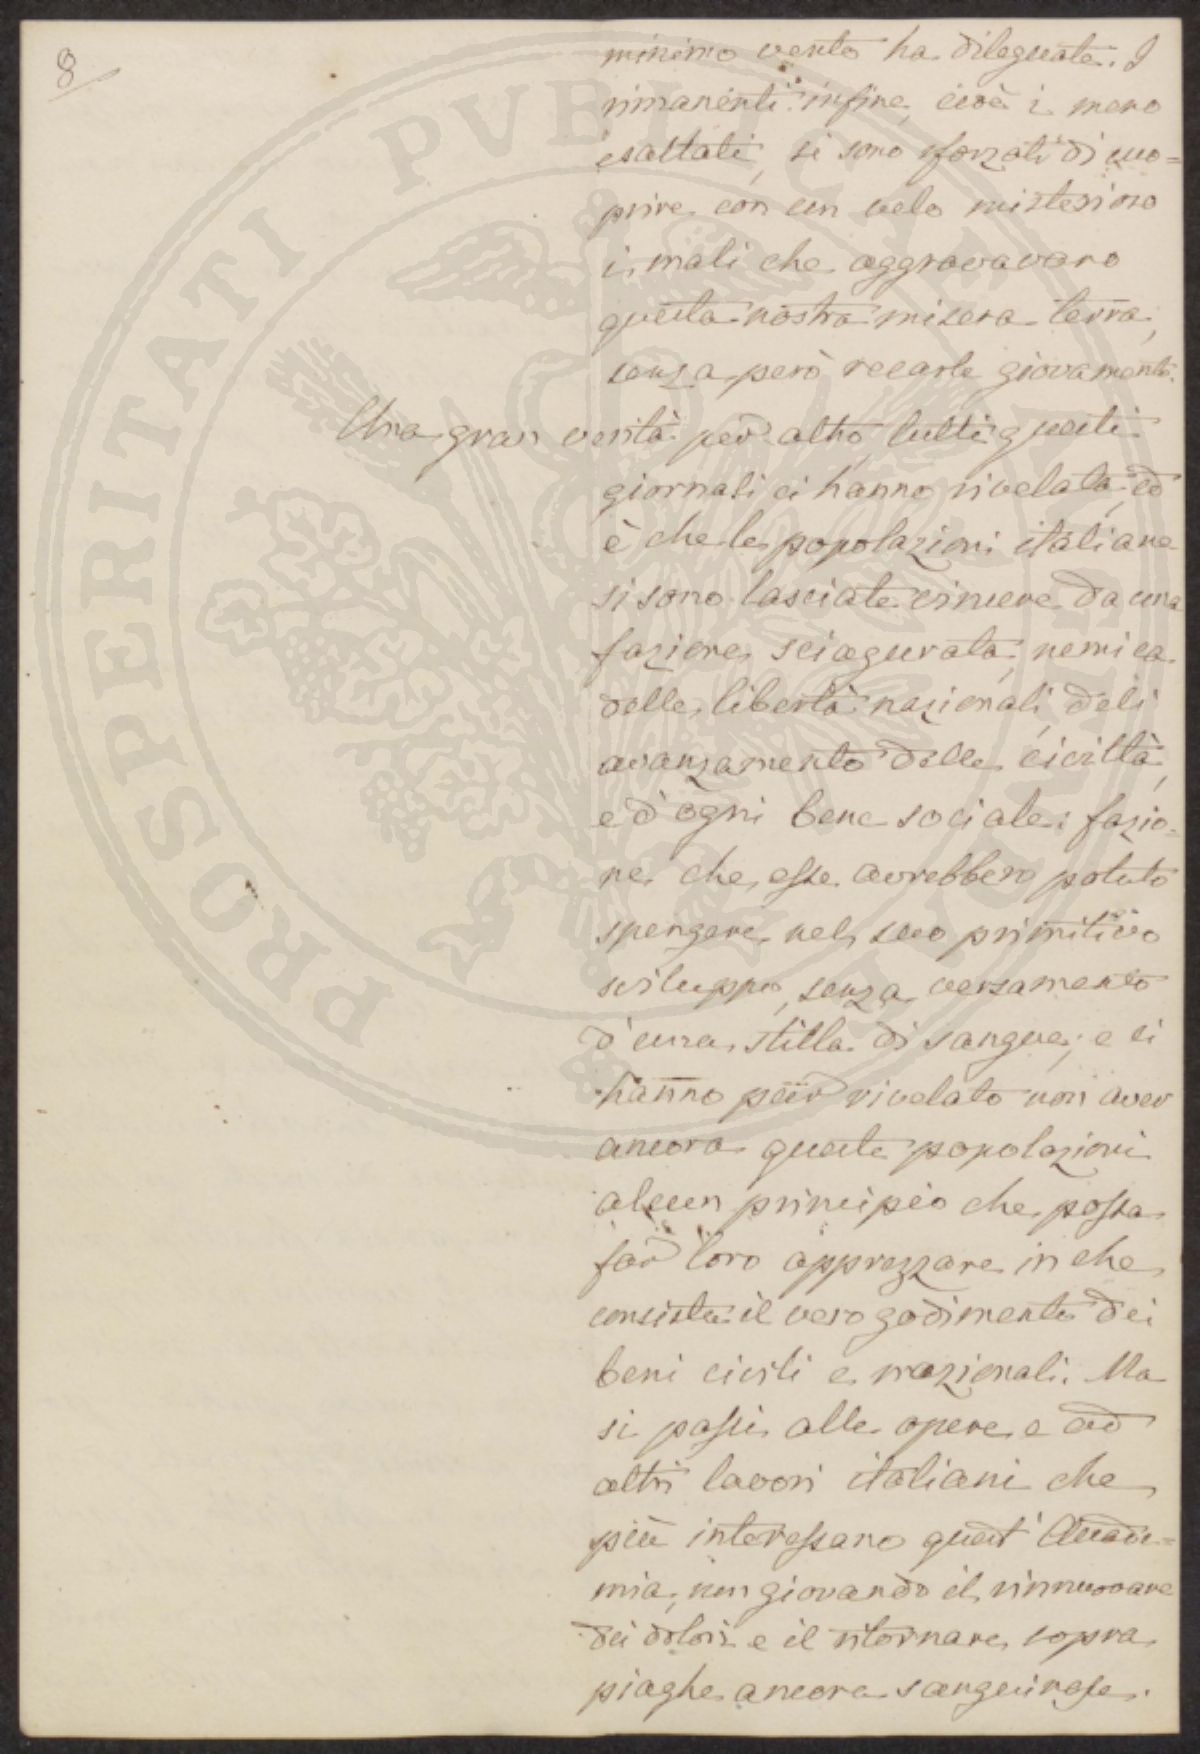 8
minimo vento ha dileguate. I
rimanenti infine, cioè i meno
esaltati, si sono sforzati di cuo=
prire con un velo misterioso
i mali che aggravavano
questa nostra misera terra,
senza però recarle giovamento.
Una gran verità per altro, tutti questi
giornali ci hanno rivelata, ed
è che le popolazioni italiane
si sono lasciate vincere da una
fazione sciagurata, nemica
delle libertà nazionali, deli
avanzamento delle civiltà,
e d'ogni bene sociale: fazio=
ne che esse avrebbero potuto
spengere nel suo primitivo
sviluppo, senza versamento
d'una stilla di sangue; e ci
hanno pur rivelato non aver
ancora queste popolazioni
alcun principio che possa
far loro apprezzare in che
consista il vero godimento dei
beni civili e nazionali. Ma
si passi alle opere e ad
altri lavori italiani che
più interessano quest'Accade=
mia, non giovando il rinnuovare
dei dolori e il ritornare sopra
piaghe ancora sanguinose.
PROSPERITATI PVBLICAE